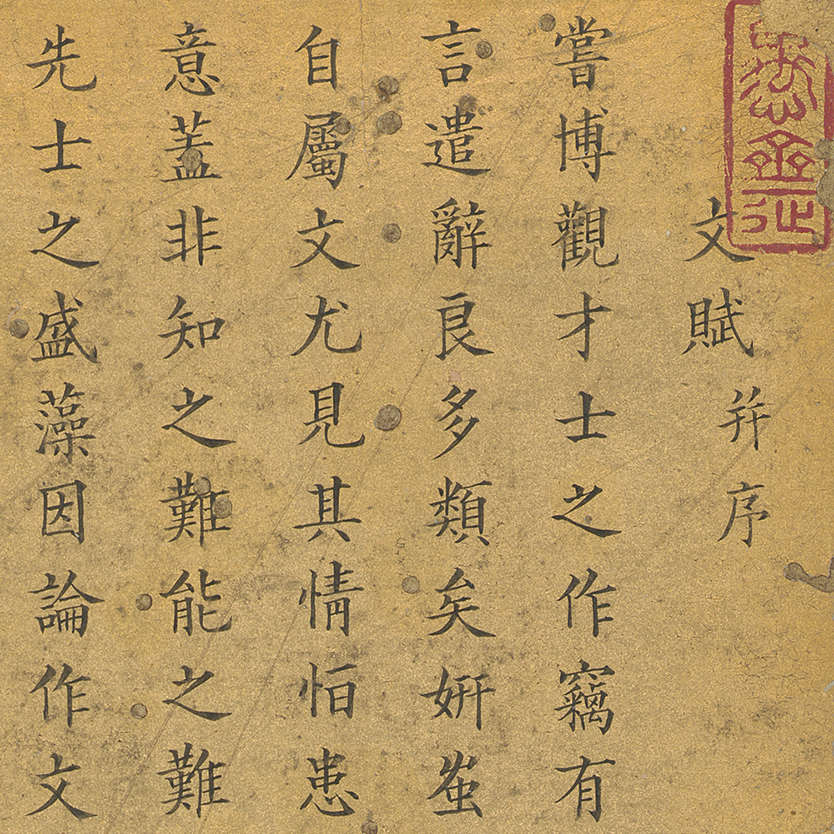 文賦并序
嘗博觀才士之作竊有
言遣辭良多類矣姸蚩
自屬文尤見其情恒患
意蓋非知之難能之難
先士之盛藻因論作文